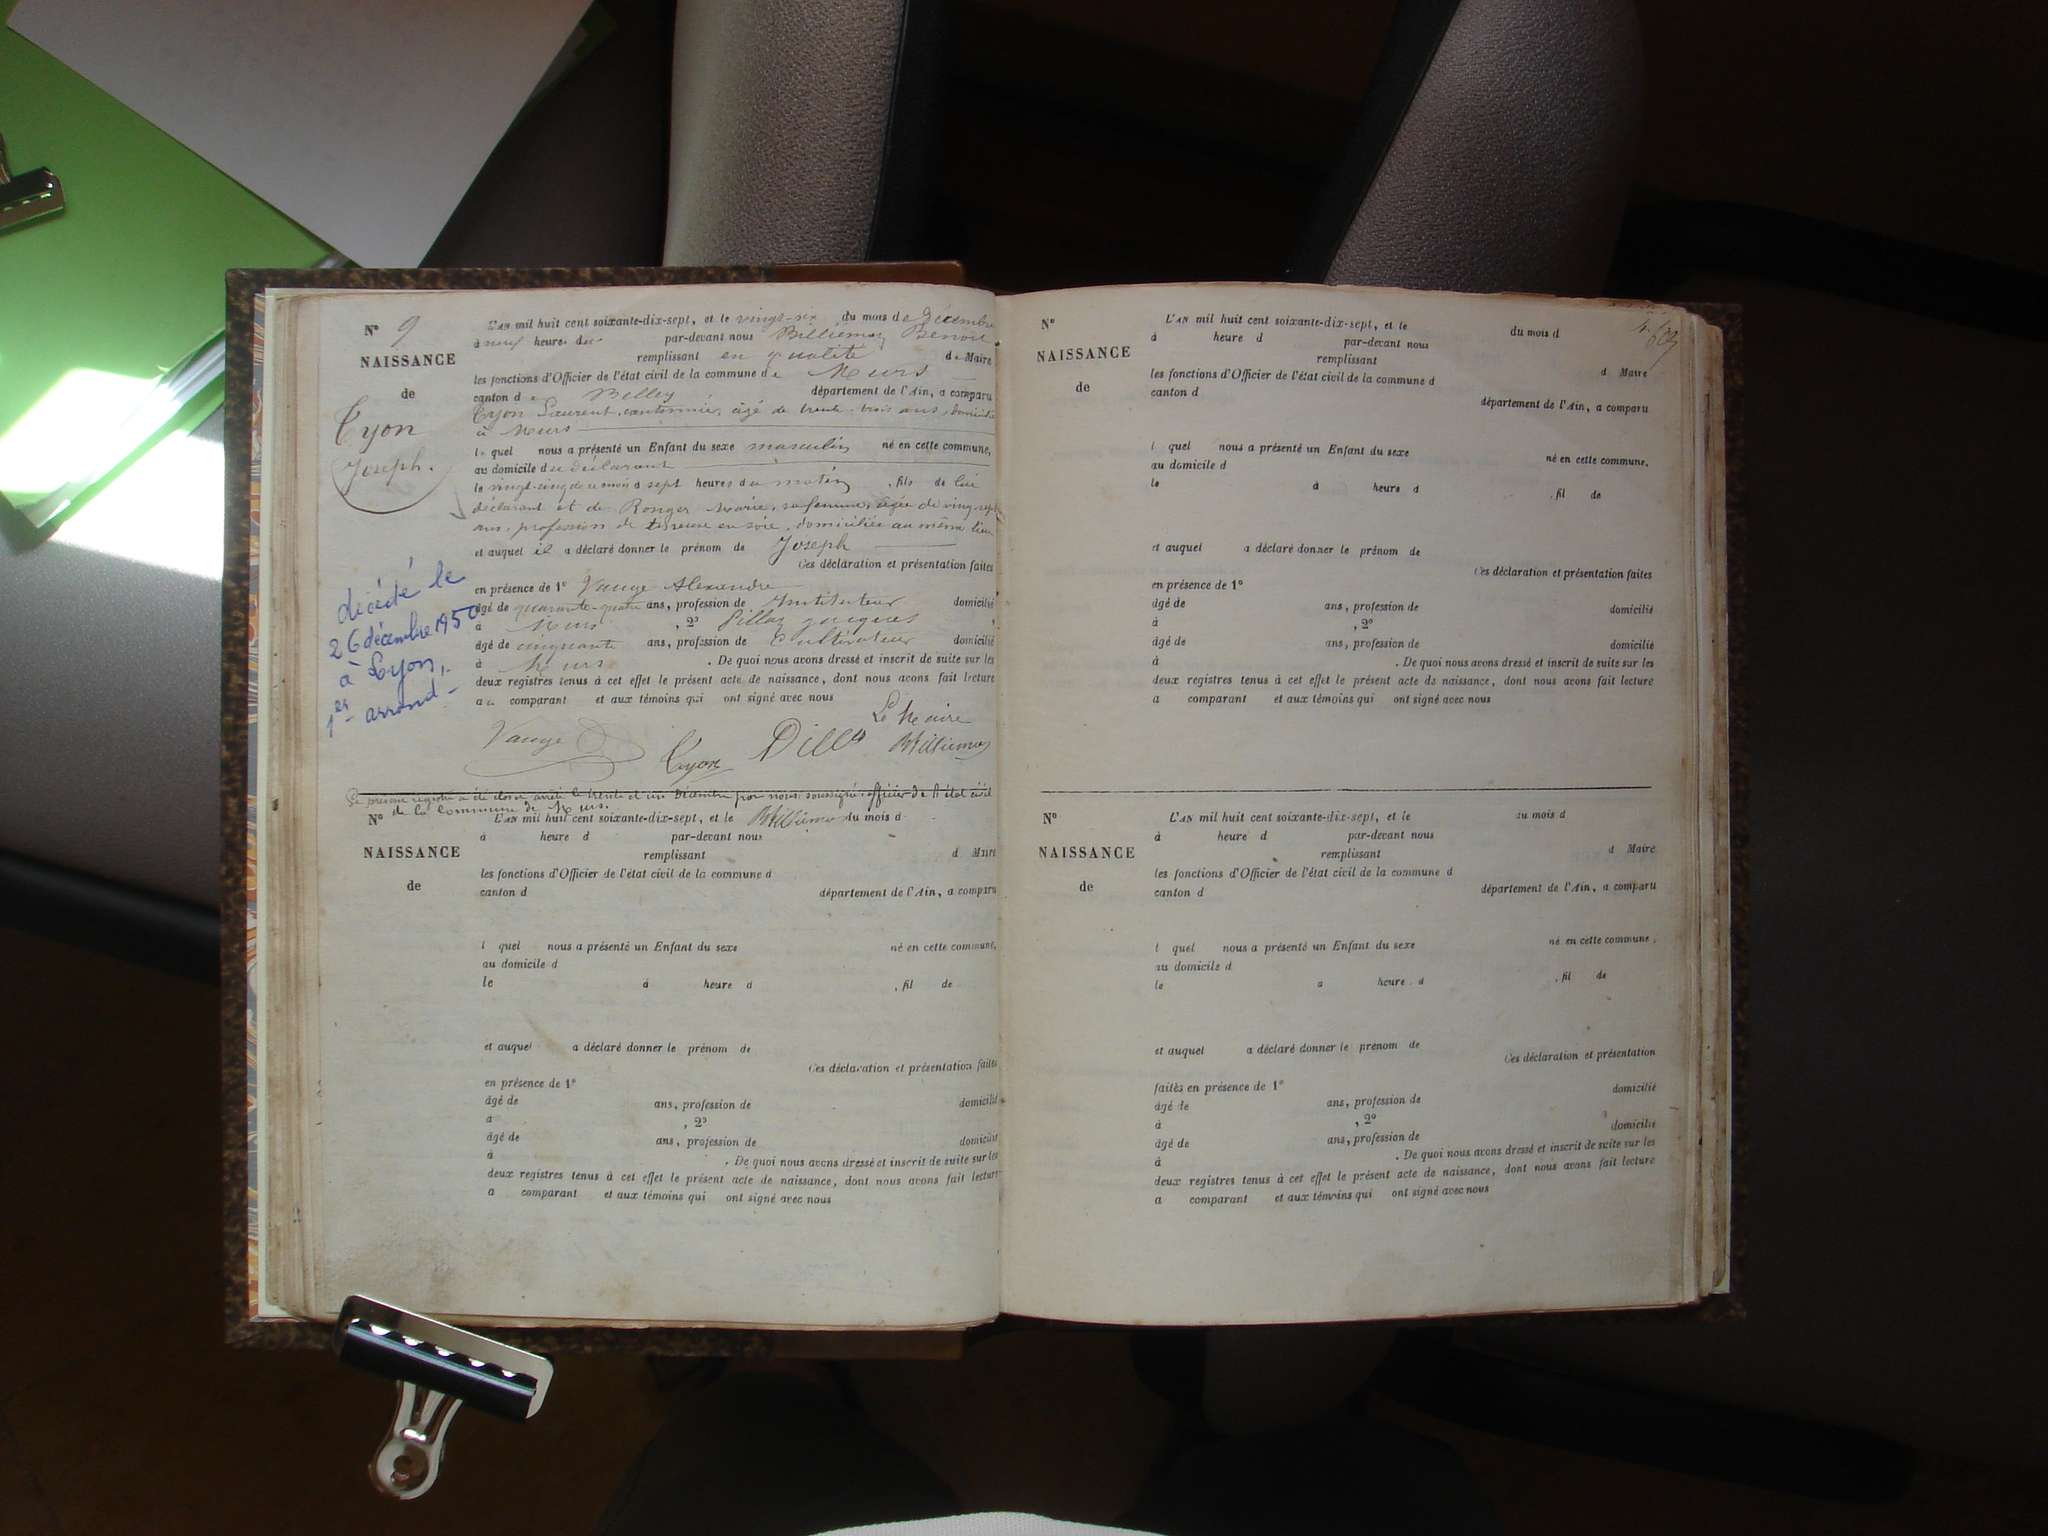 N° 9
NAISSANCE
de
Tyon
Joseph.
décédé le
26 décembre 1950
à Lyon,
1er arrond-
L'AN mil huit cent soixante-dix-sept, et le vingt-six du mois de Décembre
à neuf heures du par-devant nous Billiemaz Benoit
remplissant en qualité de Maire
les fonctions d'Officier de l'état civil de la commune de Murs
canton de Belley département de l'Ain, a comparu
Tyon Laurent, cantonnier, âgé de trente-trois ans, domicilié
à Murs
lequel nous a présenté un Enfant du sexe masculin né en cette commune,
au domicile du déclarant
le vingt-cinq de ce mois à sept heures du matin, fils de lui
déclarant et de Ronger Marie, sa femme, âgée de vingt-sept
ans, profession de tisseuse en soie, domiciliée au même lieu
et auquel il a déclaré donner le prénom de Joseph
Ces déclaration et présentation faites
en présence de 1° Vauge Alexandre
âgé de quarante-quatre ans, profession de Instituteur domicilié
à Murs, 2° Pillaz Jacques
âgé de cinquante ans, profession de Cultivateur domicilié
à Murs. De quoi nous avons dressé et inscrit de suite sur les
deux registres tenus à cet effet le présent acte de naissance, dont nous avons fait lecture
au comparant et aux témoins qui ont signé avec nous
Le Maire
Vauge Tyon Billiemaz
Le présent registre a été clos et arrêté le trente et un Décembre par nous soussigné officier de l'état civil
de la commune de Murs.
Billiemaz
N° L'AN mil huit cent soixante-dix-sept, et le du mois d
à heure d par-devant nous
NAISSANCE remplissant d Maire
de les fonctions d'Officier de l'état civil de la commune d
canton d département de l'Ain, a comparu
l quel nous a présenté un Enfant du sexe né en cette commune,
au domicile d
le à heure d , fil de
et auquel a déclaré donner le prénom de
Ces déclaration et présentation faites
en présence de 1°
âgé de ans, profession de domicilié
à , 2°
âgé de ans, profession de domicilié
à . De quoi nous avons dressé et inscrit de suite sur les
deux registres tenus à cet effet le présent acte de naissance, dont nous avons fait lecture
a comparant et aux témoins qui ont signé avec nous
N° L'AN mil huit cent soixante-dix-sept, et le du mois d
à heure d par-devant nous
NAISSANCE remplissant d Maire
de les fonctions d'Officier de l'état civil de la commune d
canton d département de l'Ain, a comparu
l quel nous a présenté un Enfant du sexe né en cette commune,
au domicile d
le à heure d , fil de
et auquel a déclaré donner le prénom de
Ces déclaration et présentation faites
en présence de 1°
âgé de ans, profession de domicilié
à , 2°
âgé de ans, profession de domicilié
à . De quoi nous avons dressé et inscrit de suite sur les
deux registres tenus à cet effet le présent acte de naissance, dont nous avons fait lecture
a comparant et aux témoins qui ont signé avec nous
N° L'AN mil huit cent soixante-dix-sept, et le du mois d
à heure d par-devant nous
NAISSANCE remplissant d Maire
de les fonctions d'Officier de l'état civil de la commune d
canton d département de l'Ain, a comparu
l quel nous a présenté un Enfant du sexe né en cette commune,
au domicile d
le à heure d , fil de
et auquel a déclaré donner le prénom de
Ces déclaration et présentation
faites en présence de 1° domicilié
âgé de ans, profession de
à , 2° domicilié
âgé de ans, profession de
à . De quoi nous avons dressé et inscrit de suite sur les
deux registres tenus à cet effet le présent acte de naissance, dont nous avons fait lecture
a comparant et aux témoins qui ont signé avec nous